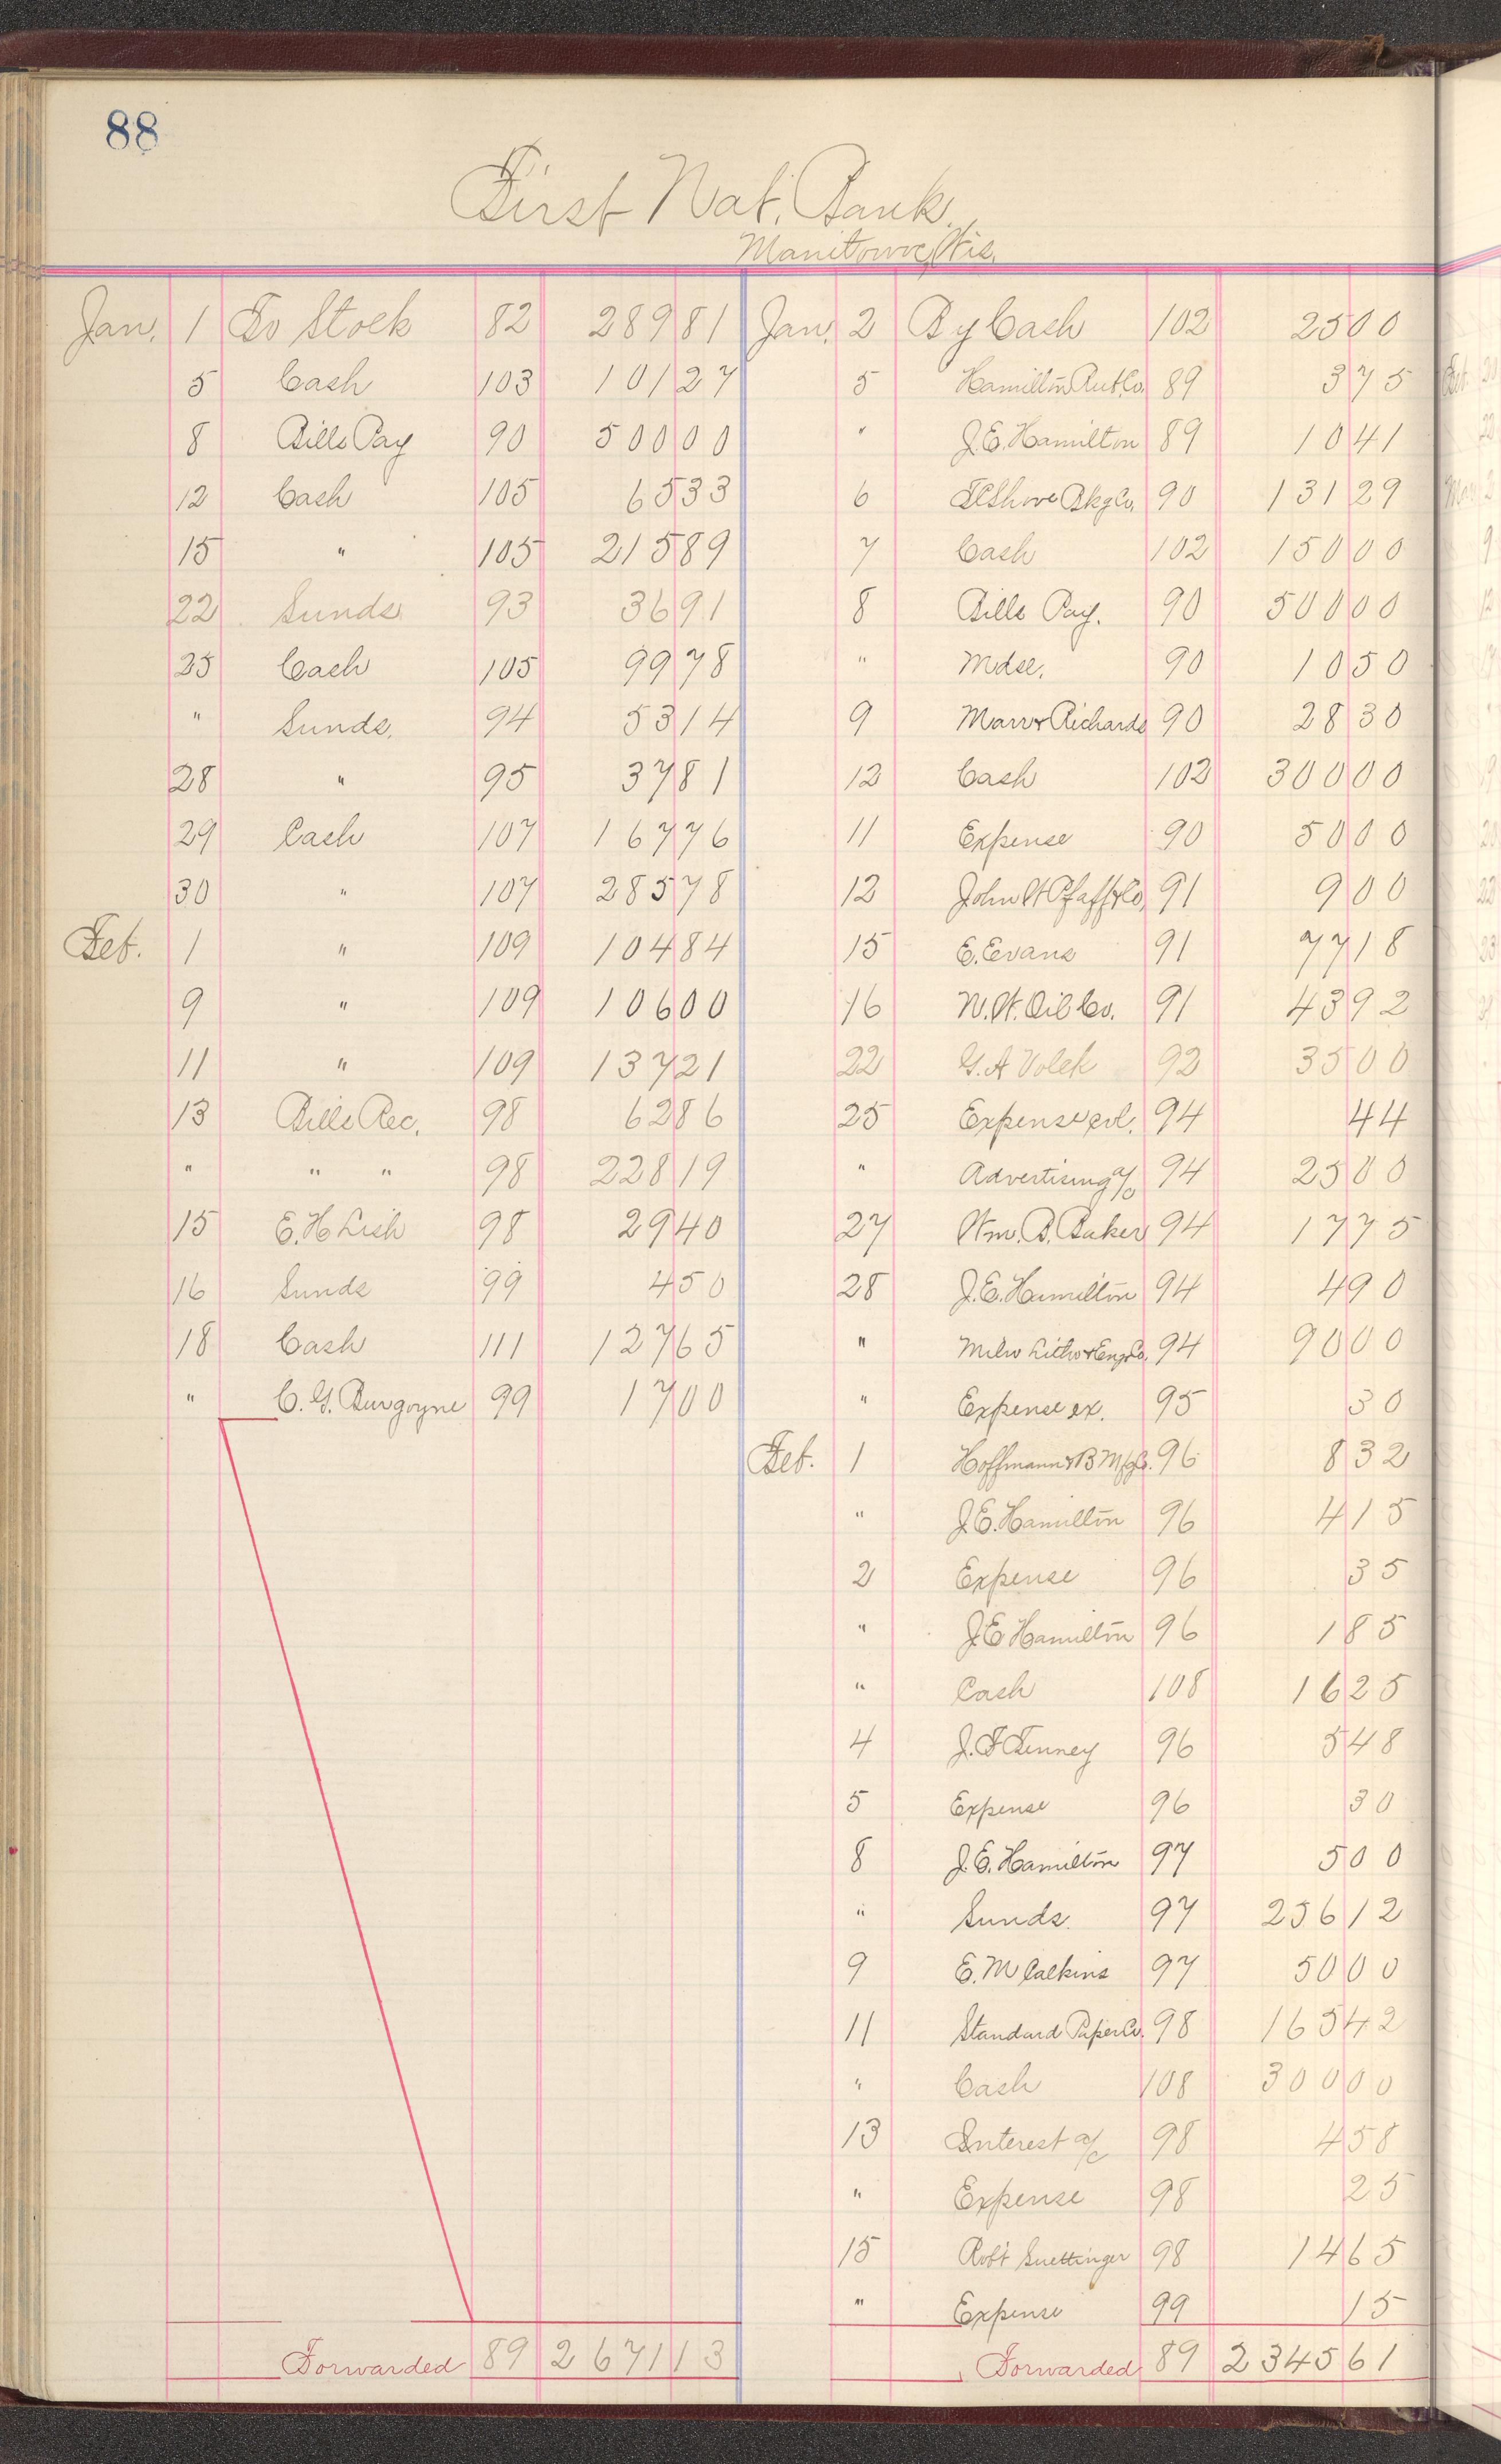 88
First Nat. Bank.
Manitowoc, Wis.
Jan. 1 To Stock 82 289 81
5 Cash 103 101 27
8 Bills Pay 90 500 00
12 Cash 105 65 33
15 " 105 215 89
22 Sunds 93 36 91
25 Cash 105 99 78
" Sunds. 94 53 14
28 " 95 37 81
29 Cash 107 167 76
30 " 107 285 78
Feb. 1 " 109 104 84
9 " 109 106 00
11 " 109 137 21
13 Bills Rec. 98 62 86
" " " 98 228 19
15 E. H. Lish 98 29 40
16 Sunds 99 4 50
18 Cash 111 127 65
" C. G. Burgoyne 99 17 00
Forwarded 89 2671 13
Jan. 2 By Cash 102 25 00
5 Hamilton Aut. Co. 89 3 75
" J. E. Hamilton 89 10 41
6 T C Shove Bkg Co. 90 131 29
7 Cash 102 150 00
8 Bills Pay. 90 500 00
" Mdse. 90 10 50
9 Marr & Richards 90 28 30
12 Cash 102 300 00
11 Expense 90 50 00
12 John W Pfaff & Co. 91 9 00
15 E. Evans 91 77 18
16 N. W. Oil Co. 91 43 92
22 G. A Volek 92 35 00
25 Expense 94 44
" Advertising a/c 94 25 00
27 Wm. B. Baker 94 17 75
28 J. E. Hamilton 94 4 90
" Milw Litho & Eng. Co. 94 90 00
" Expense ex. 95 30
Feb. 1 Hoffmann & B Mfg Co. 96 8 32
" J. E. Hamilton 96 4 15
2 Expense 96 35
" J. E Hamilton 96 1 85
" Cash 108 16 25
4 J. F Tenney 96 5 48
5 Expense 96 30
8 J. E. Hamilton 97 5 00
" Sunds. 97 256 12
9 E. M Calkins 97 50 00
11 Standard Paper Co. 98 165 42
" Cash 108 300 00
13 Interest a/c 98 4 58
" Expense 98 25
15 Rob't Suettinger 98 14 65
" Expense 99 15
Forwarded 89 2345 61